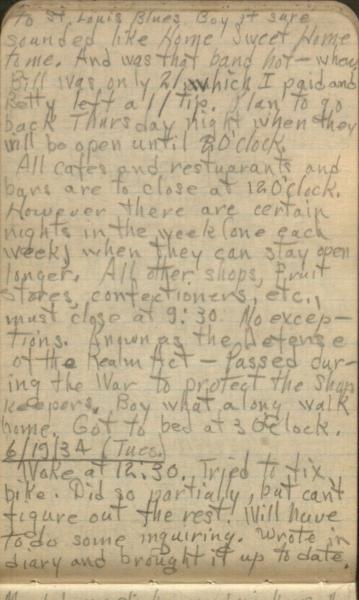 to St. Louis Blues. Boy it sure
sounded like Home Sweet Home
to me. And was that band hot - whew
Bill was only 2/ which I paid and
Betty left a 1/ tip. Plan to go
back Thursday night when they
will be open until 2 O'clock.
All cafes and restuarants and
bars are to close at 12 O'clock.
However there are certain
nights in the week (one each
week) when they can stay open
longer. All other shops, fruit
stores, confectioners, etc.,
must close at 9:30. No excep-
tions. Known as the Defense
of the Realm Act - Passed dur-
ing the War to protect the shop
keepers. Boy what a long walk
home. Got to bed at 3 O'clock.
6/19/34 (Tues.)
Woke at 12:30. Tried to fix
bike. Did so partially, but can't
figure out the rest. Will have
to do some inquiring. Wrote in
diary and brought it up to date.